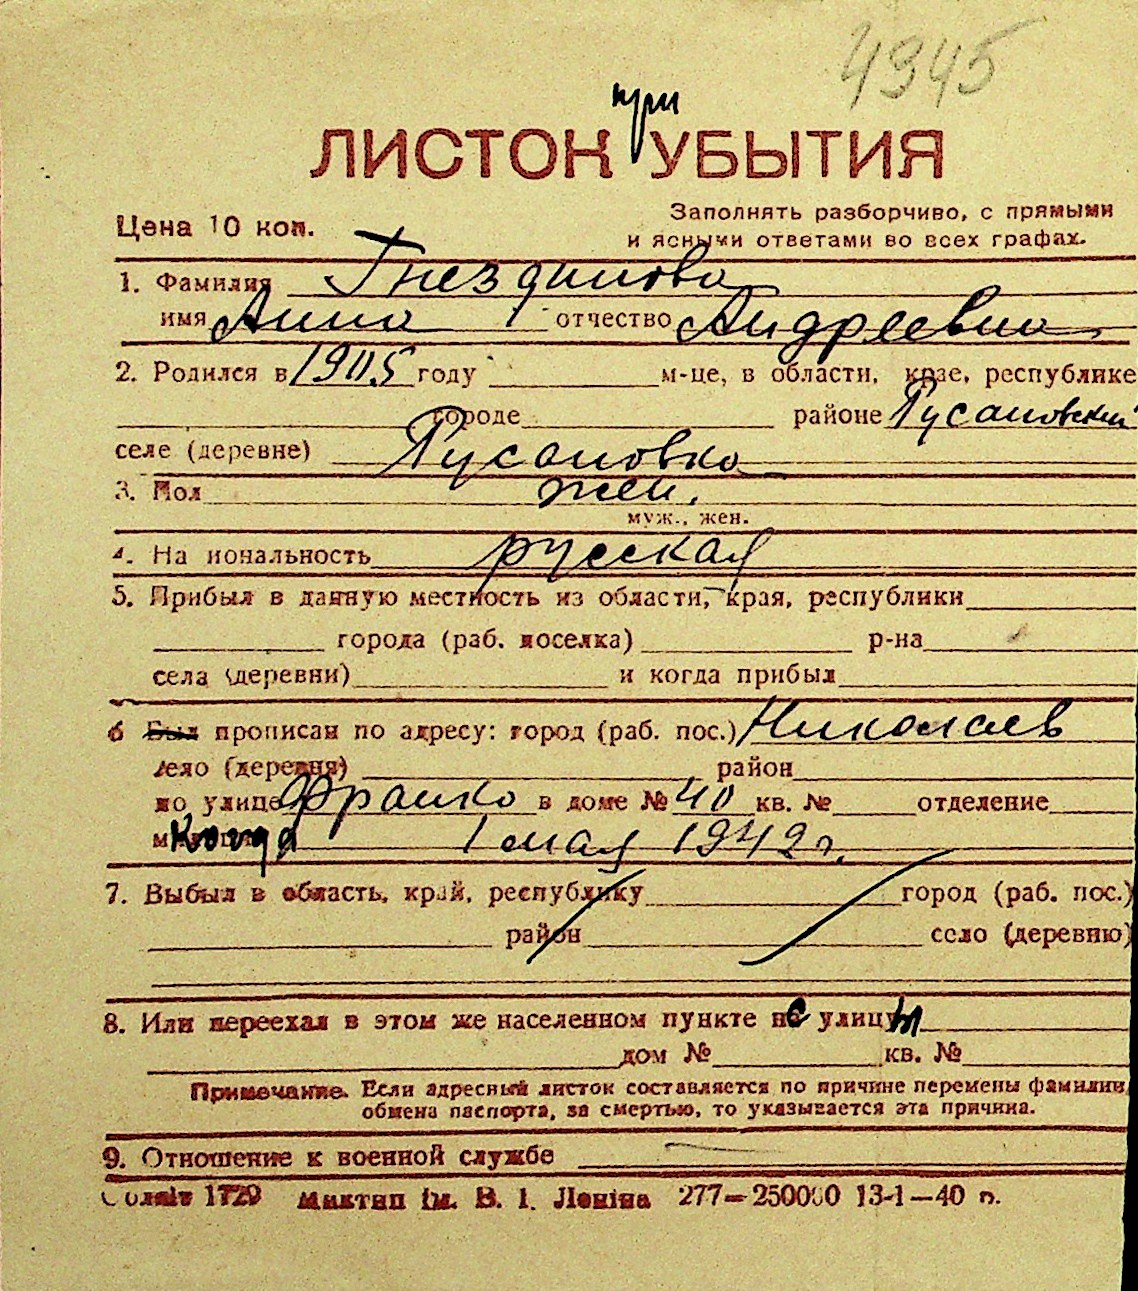 4945
при
ЛИСТОК УБЫТИЯ
Цена 10 коп.
Заполнять разборчиво, с прямыми
и ясными ответами во всех графах.
1. Фамилия Гнездилова
имя Анна отчество Андреевна
2. Родился в 1905 году м-це, в области, крае, республике
городе районе Русановский
селе (деревне) Русановка
3. Пол жен.
муж., жен.
4. На иональность русская
5. Прибыл в данную местность из области, края, республики
города (раб. поселка) р-на
села (деревни) и когда прибыл
6 Был прописан по адресу: город (раб. пос.) Николаев
село (деревня) район
по улице Франко в доме № 40 кв. № отделение
Когда 1 мая 1942 г.
7. Выбыл в область, край, республику город (раб. пос.)
район село (деревню)
8. Или переехал в этом же населенном пункте с улицы
дом № кв. №
Примечание. Если адресный листок составляется по причине перемены фамилии,
обмена паспорта, за смертью, то указывается эта причина.
9. Отношение к военной службе
1729 Миктип ім. В. І. Леніна 277—250000 13-1—40 р.